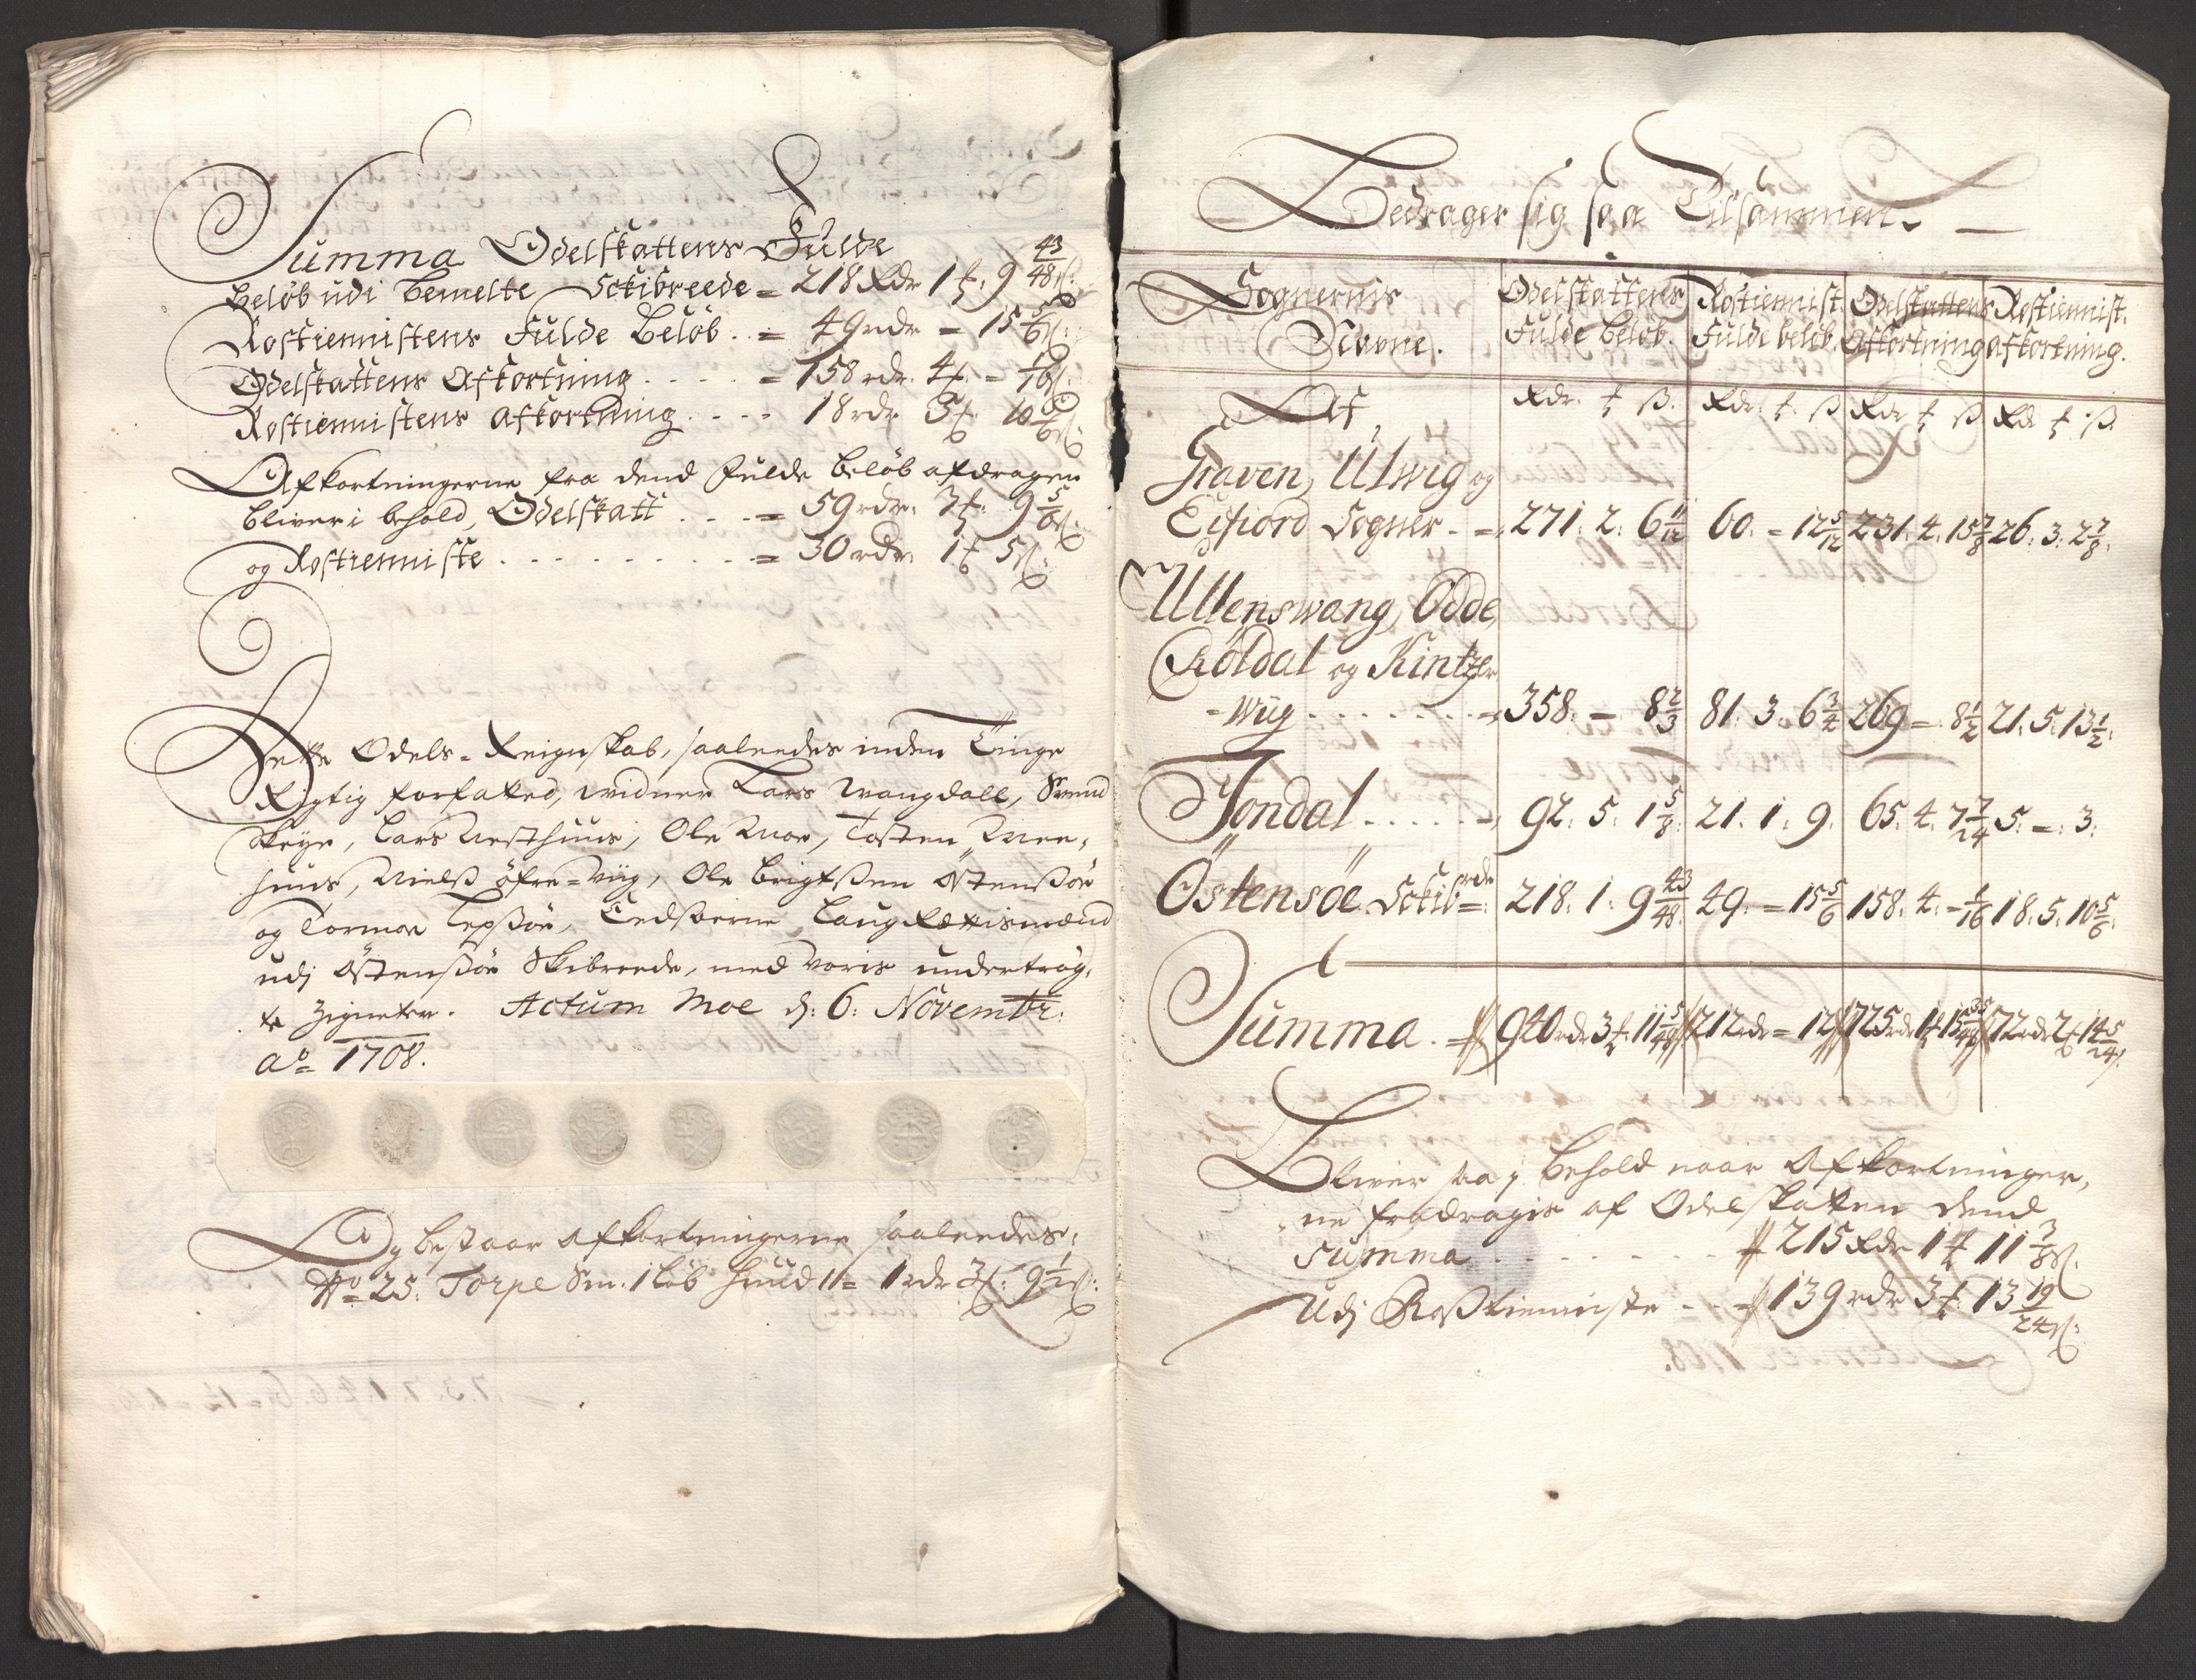 Summa Odelskattens Fulde
Beløb udi bemelte Sckibreede = 218 Rdr 1 ʄ: 9 43/48 ß:
Rostiennistens Fulde Beløb .. = 49 rdr = 15 5/6 ß:
Odelskattens Afkortning . . . . . = 158 rdr. 4 ʄ. - 1/16 ß:
Rostiennistens afkortning . . . - 18 rdr 5 ʄ. 10 5/6 ß:
Afkortningerne fra dend Fulde beløb afdragen
bliver i behold, Odelskatt . . . = 59 rdr: 3 ʄ: 9 5/6 ß:
og Rostienniste . . . . . . . . . . = 30 rdr. 1 ʄ 5 ß:
Dette Odels-Reignskab, saaleedes inden Tinge
Rigtig forfatted, vidner Lars Wangdall, Svend
Skeye, Lars Nesthuus, Ole Moe, Tosten Mee-
huus, Nielß Øfre-Viig, Ole Brigtßen Østenßøe
og Tormoe Lepßøe, Eedsorne Laug Rættismænd
udj Østensøe Skibreede, med voris undertrøg-
te Zigneter. Actum Moe d: 6: Novembr:
aº 1708.
Og bestaar afkortningerne saaleedes:
Nº 25. Torpe Sm. 1 løb huud 1 = 1 rdr 3 ʄ: 9 1/2 ß:
Bedrager sig saa Tilsammen.
Sognernis Navne.
Odelskattens Fulde beløb.
Rostiennist. Fulde beløb.
Odelskattens Afkortning
Rostiennist. afkortning.
Af
Rdr. ʄ ß. Rdr. ʄ. ß Rdr ʄ ß Rd ʄ ß
Graven, Ulwig og
Eifiord Sogner - = 271. 2. 6 11/12 60. = 12 5/12 231. 4. 15 7/8 26. 3. 2 7/8.
Ullenswang, Odde,
Röldal og Kintzer
-wiig . . . . . . . = 358. - 8 2/3 81. 3. 6 3/4 269 = 8 1/2 21. 5. 13 1/2.
Jondal . . . . . = 92. 5. 1 5/8. 21. 1. 9. 65. 4. 7 7/24 5. =. 3.
Östensöe Sckibrde =. 218. 1. 9 43/48. 49. = 15 5/6 158. 4. - 1/16 18. 5. 10 5/6.
Summa. = 940 rdr 3 ʄ. 11 5/48 ß 212 rdr = 12 ß 725 rdr 1 ʄ 15 35/48 ß 72 rdr 2 ʄ 14 5/24 ß.
Bliver saa i behold naar Afkortninger,
ne fradragis af Odelskatten dend
Summa . . . . . . . . 215 Rdr 1 ʄ 11 3/8 ß.
Udj Roßtienniste - - = 139 rdr 3 ʄ. 13 19/24 ß: